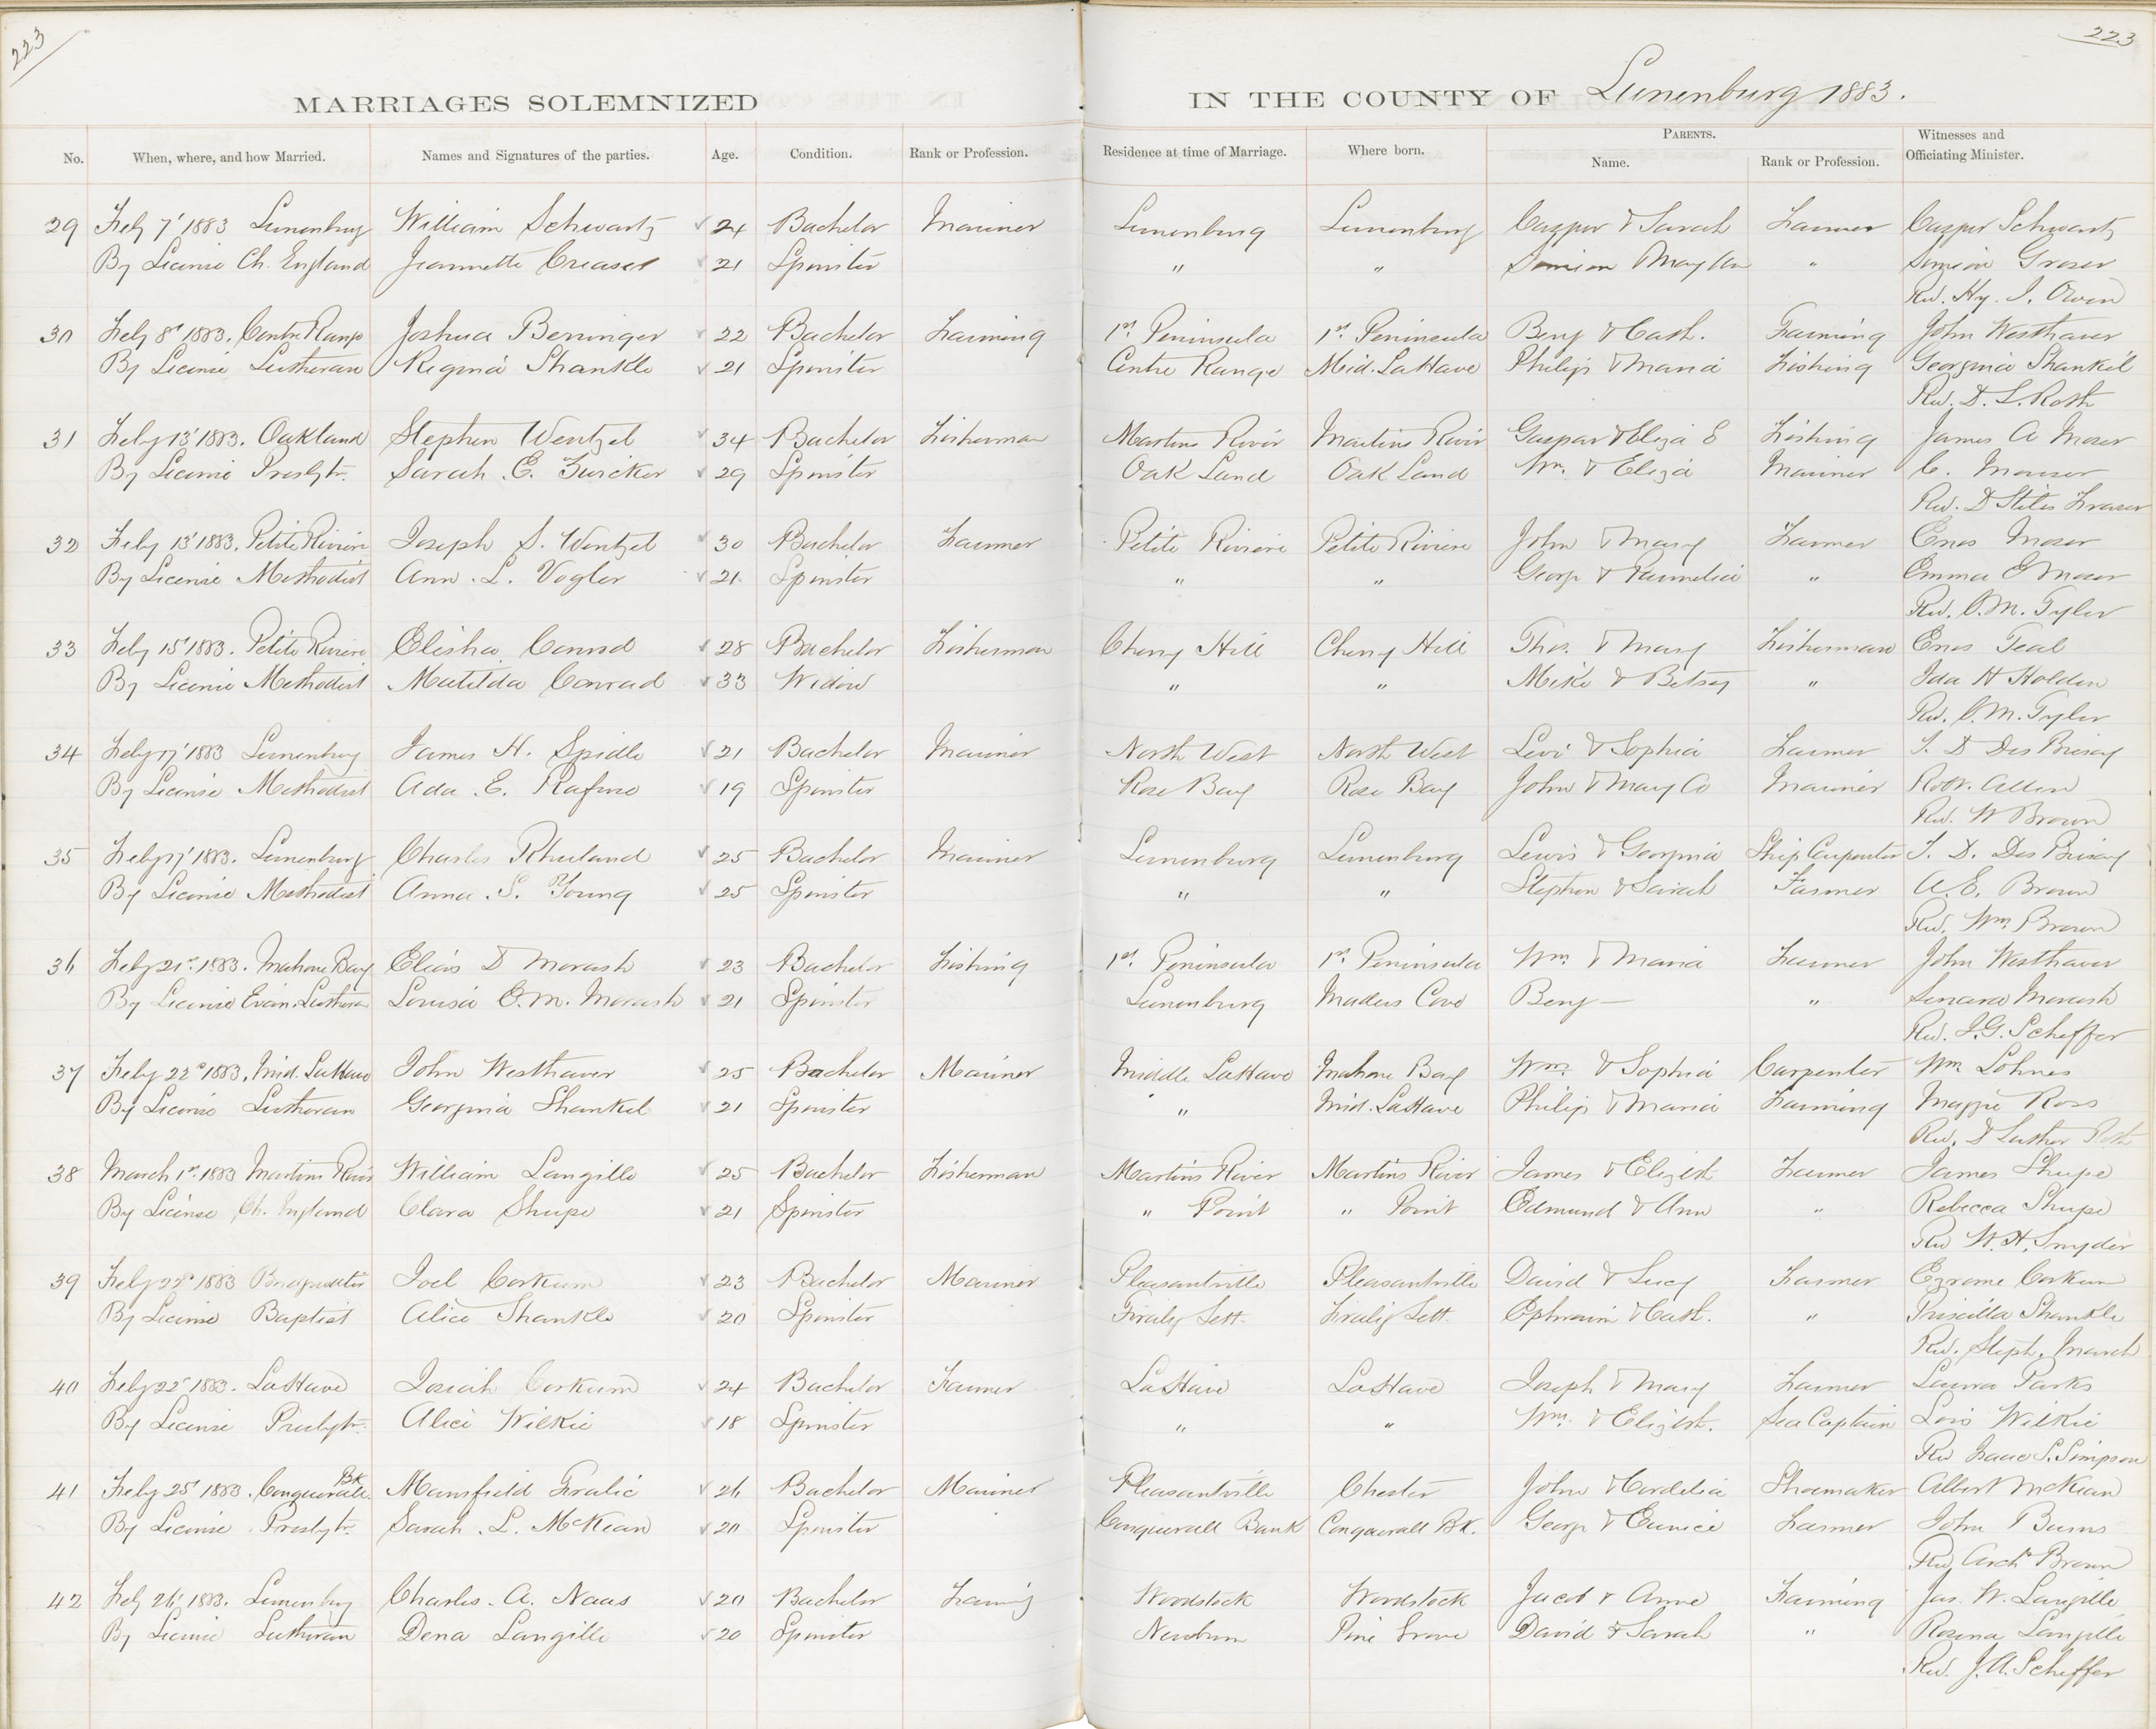 223
223
MARRIAGES SOLEMNIZED IN THE COUNTY OF Lunenburg 1883.
No. When, where, and how Married. Names and Signatures of the parties. Age. Condition. Rank or Profession. Residence at time of Marriage. Where born. PARENTS. Name. Rank or Profession. Witnesses and Officiating Minister.
29 Feby 7' 1883 Lunenburg William Schwartz 24 Bachelor Mariner Lunenburg Lunenburg Caspar & Sarah Farmer Caspar Schwartz
By License Ch. England Jeannette Creaser 21 Spinster " " Simion Mary Ann " Simion Groser
Rev. Hy. I. Owen
30 Feby 8th 1883. Centre Range Joshua Berringer 22 Bachelor Farming 1st Peninsula 1st Peninsula Benj & Cath. Farming John Westhaver
By License Lutheran Regina Shankle 21 Spinster Centre Range Mid. LaHave Philip & Maria Fishing Georgina Shankel
Rev. D. L. Roth
31 Feby 13' 1883. Oakland Stephen Wentzel 34 Bachelor Fisherman Martins River Martins River Gaspar & Eliza E Fishing James A Moser
By License Presbytr. Sarah E. Zwicker 29 Spinster Oak Land Oak Land Wm. & Eliza Mariner C. Mouser
Rev. D Stiles Fraser
32 Feby 13' 1883. Petite Riviere Joseph S. Wentzel 30 Bachelor Farmer Petite Riviere Petite Riviere John & Mary Farmer Enos Moser
By License Methodist Ann L. Vogler 21 Spinster " " George & Parmelia " Emma E Moser
Rev. C. M. Tyler
33 Feby 15' 1883. Petite Riviere Elisha Conrad 28 Bachelor Fisherman Cherry Hill Cherry Hill Thos. & Mary Fisherman Enos Teal
By License Methodist Matilda Conrad 33 Widow " " Mike & Betsey " Ida H Holden
Rev. C. M. Tyler
34 Feby 17' 1883 Lunenburg James H. Spidle 21 Bachelor Mariner North West North West Levi & Sophia Farmer T. D Des Brisay
By License Methodist Ada E. Rafuse 19 Spinster Rose Bay Rose Bay John & Mary A Mariner Robt. Allen
Rev. W Brown
35 Feby 17' 1883. Lunenburg Charles Rhuland 25 Bachelor Mariner Lunenburg Lunenburg Lewis & Georgina Ship Carpenter T. D. Des Brisay
By License Methodist Anna S. Young 25 Spinster " " Stephen & Sarah Farmer A. E. Brown
Rev. Wm. Brown
36 Feby 21st 1883. Mahone Bay Elias D Morash 23 Bachelor Fishing 1st. Peninsula 1st. Peninsula Wm. & Maria Farmer John Westhaver
By License Evan. Lutheran Louisa E. M. Morash 21 Spinster Lunenburg Maders Cove Benj — " Morash
Rev. J. G. Scheffer
37 Feby 22d 1883. Mid. LaHave John Westhaver 25 Bachelor Mariner Middle LaHave Mahone Bay Wm. & Sophia Carpenter Wm Lohnes
By License Lutheran Georgina Shankel 21 Spinster " Mid. LaHave Philip & Maria Farming Maggie Ross
Rev. D Luther Roth
38 March 1st. 1883 Martins River William Langille 25 Bachelor Fisherman Martins River Martins River James & Elizbh Farmer James Shupe
By License Ch. England Clara Shupe 21 Spinster " Point " Point Edmund & Ann " Rebecca Shupe
Rev W. H. Snyder
39 Feby 22d 1883 Bridgewater Joel Corkum 23 Bachelor Mariner Pleasantville Pleasantville David & Lucy Farmer Corkum
By License Baptist Alice Shankle 20 Spinster Fralig Sett. Fralig Sett. Ephraim & Cath. " Priscilla Shankle
Rev. Steph. March
40 Feby 22' 1883. LaHave Josiah Corkum 24 Bachelor Farmer LaHave LaHave Joseph & Mary Farmer Laura Parks
By License Presbytr. Alice Wilkie 18 Spinster " " Wm. & Elizbh. Sea Captain Lois Wilkie
Rev Isaac S. Simpson
41 Feby 25' 1883. Conquerall Bk Mansfield Fralic 26 Bachelor Mariner Pleasantville Chester John & Cordelia Shoemaker Albert McKean
By License Presbytr. Sarah L. McKean 20 Spinster Conquerall Bank Conquerall Bk. George & Eunice Farmer John Burns
Rev Archd Brown
42 Feby 26' 1883. Lunenburg Charles A. Naas 20 Bachelor Farming Woodstock Woodstock Jacob & Anne Farming Jas. W. Langille
By License Lutheran Dena Langille 20 Spinster Newburn Pine Grove David & Sarah " Rosena Langille
Rev. J. A. Scheffer